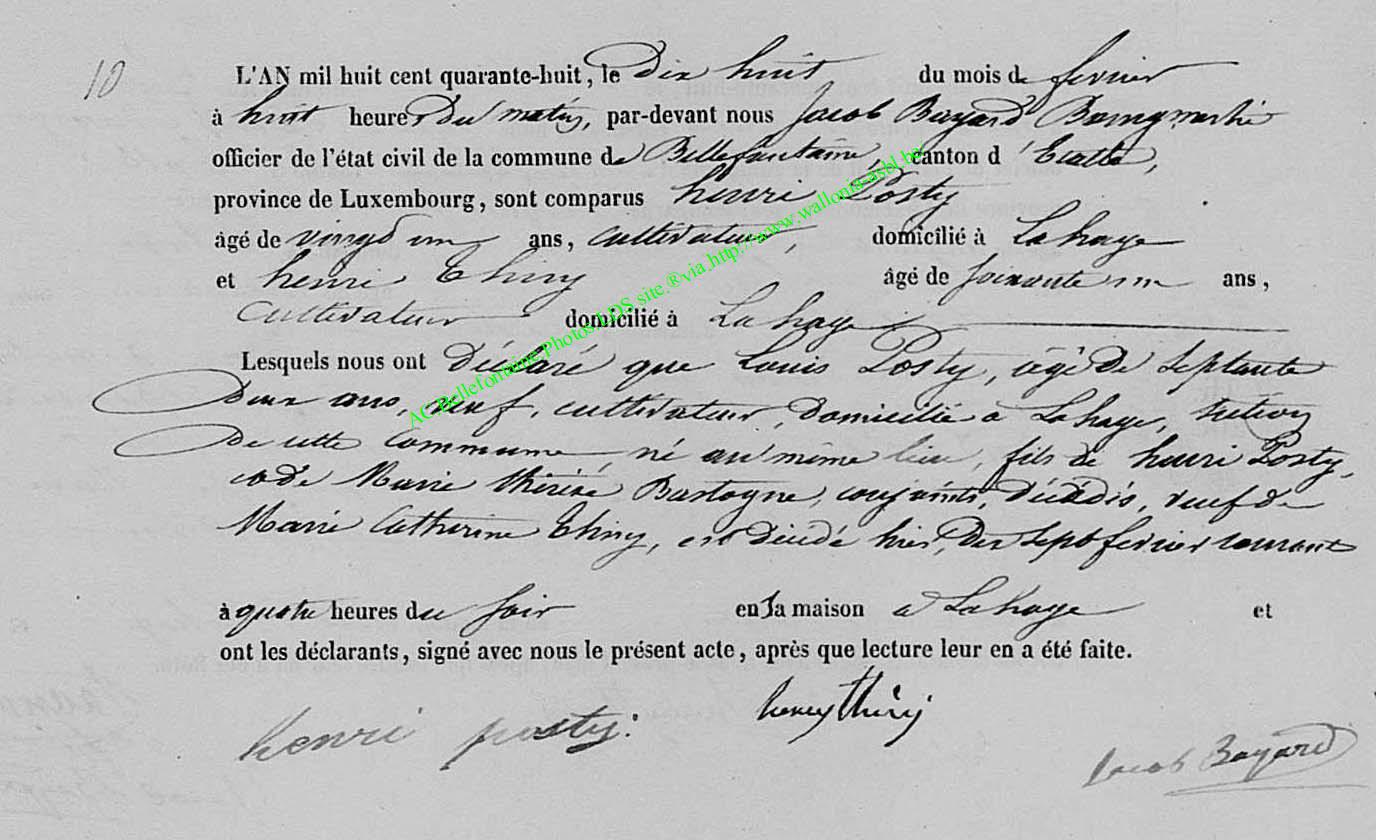 10
L'AN mil huit cent quarante-huit, le dix huit du mois de fevrier
à huit heures du matin, par-devant nous Jacob Bayard Bourgmestre
officier de l'état civil de la commune de Bellefontaine, canton d'Etalle,
province de Luxembourg, sont comparus henri Posty
âgé de vingt un ans, cultivateur, domicilié à Lahage
et henri Thiry âgé de soixante un ans,
cultivateur domicilié à Lahage
Lesquels nous ont déclaré que Louis Posty, âgé de septante
deux ans, veuf, cultivateur, domicilié à Lahage, section
de cette commune, né au même lieu, fils de henri Posty,
et de Marie thérèse Bastogne, conjoints, décédés, veuf de
Marie Catherine Thiry, est décédé hier, dix sept fevrier courant
à quatre heures du soir en sa maison a Lahage et
ont les déclarants, signé avec nous le présent acte, après que lecture leur en a été faite.
henri posty. henry thiry
Jacob Bayard
AC.Bellefontaine.Photos.LDS site ®via.http://www.wallonia-asbl.be/